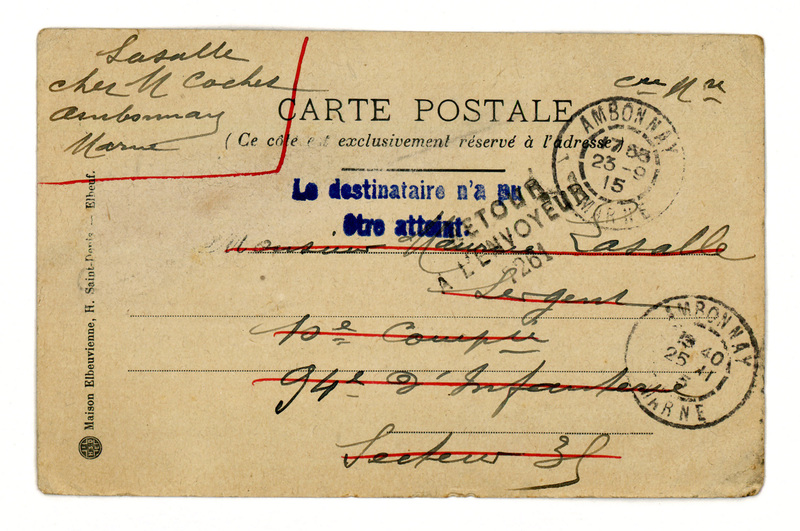 Lasalle
chez M Cochet
Ambonnay
Marne
Cre Mre
CARTE POSTALE
(Ce côté est exclusivement réservé à l'adresse)
AMBONNAY
23 -9
15
MARNE
Le destinataire n'a pu
être atteint.
RETOUR
A L'ENVOYEUR
7261
Monsieur Maurice Lasalle
Sergent
10e Compie
94e d'Infanterie
Secteur 35
AMBONNAY
15 40
25 -11
MARNE
Maison Elbeuvienne, H. Saint-Denis — Elbeuf.